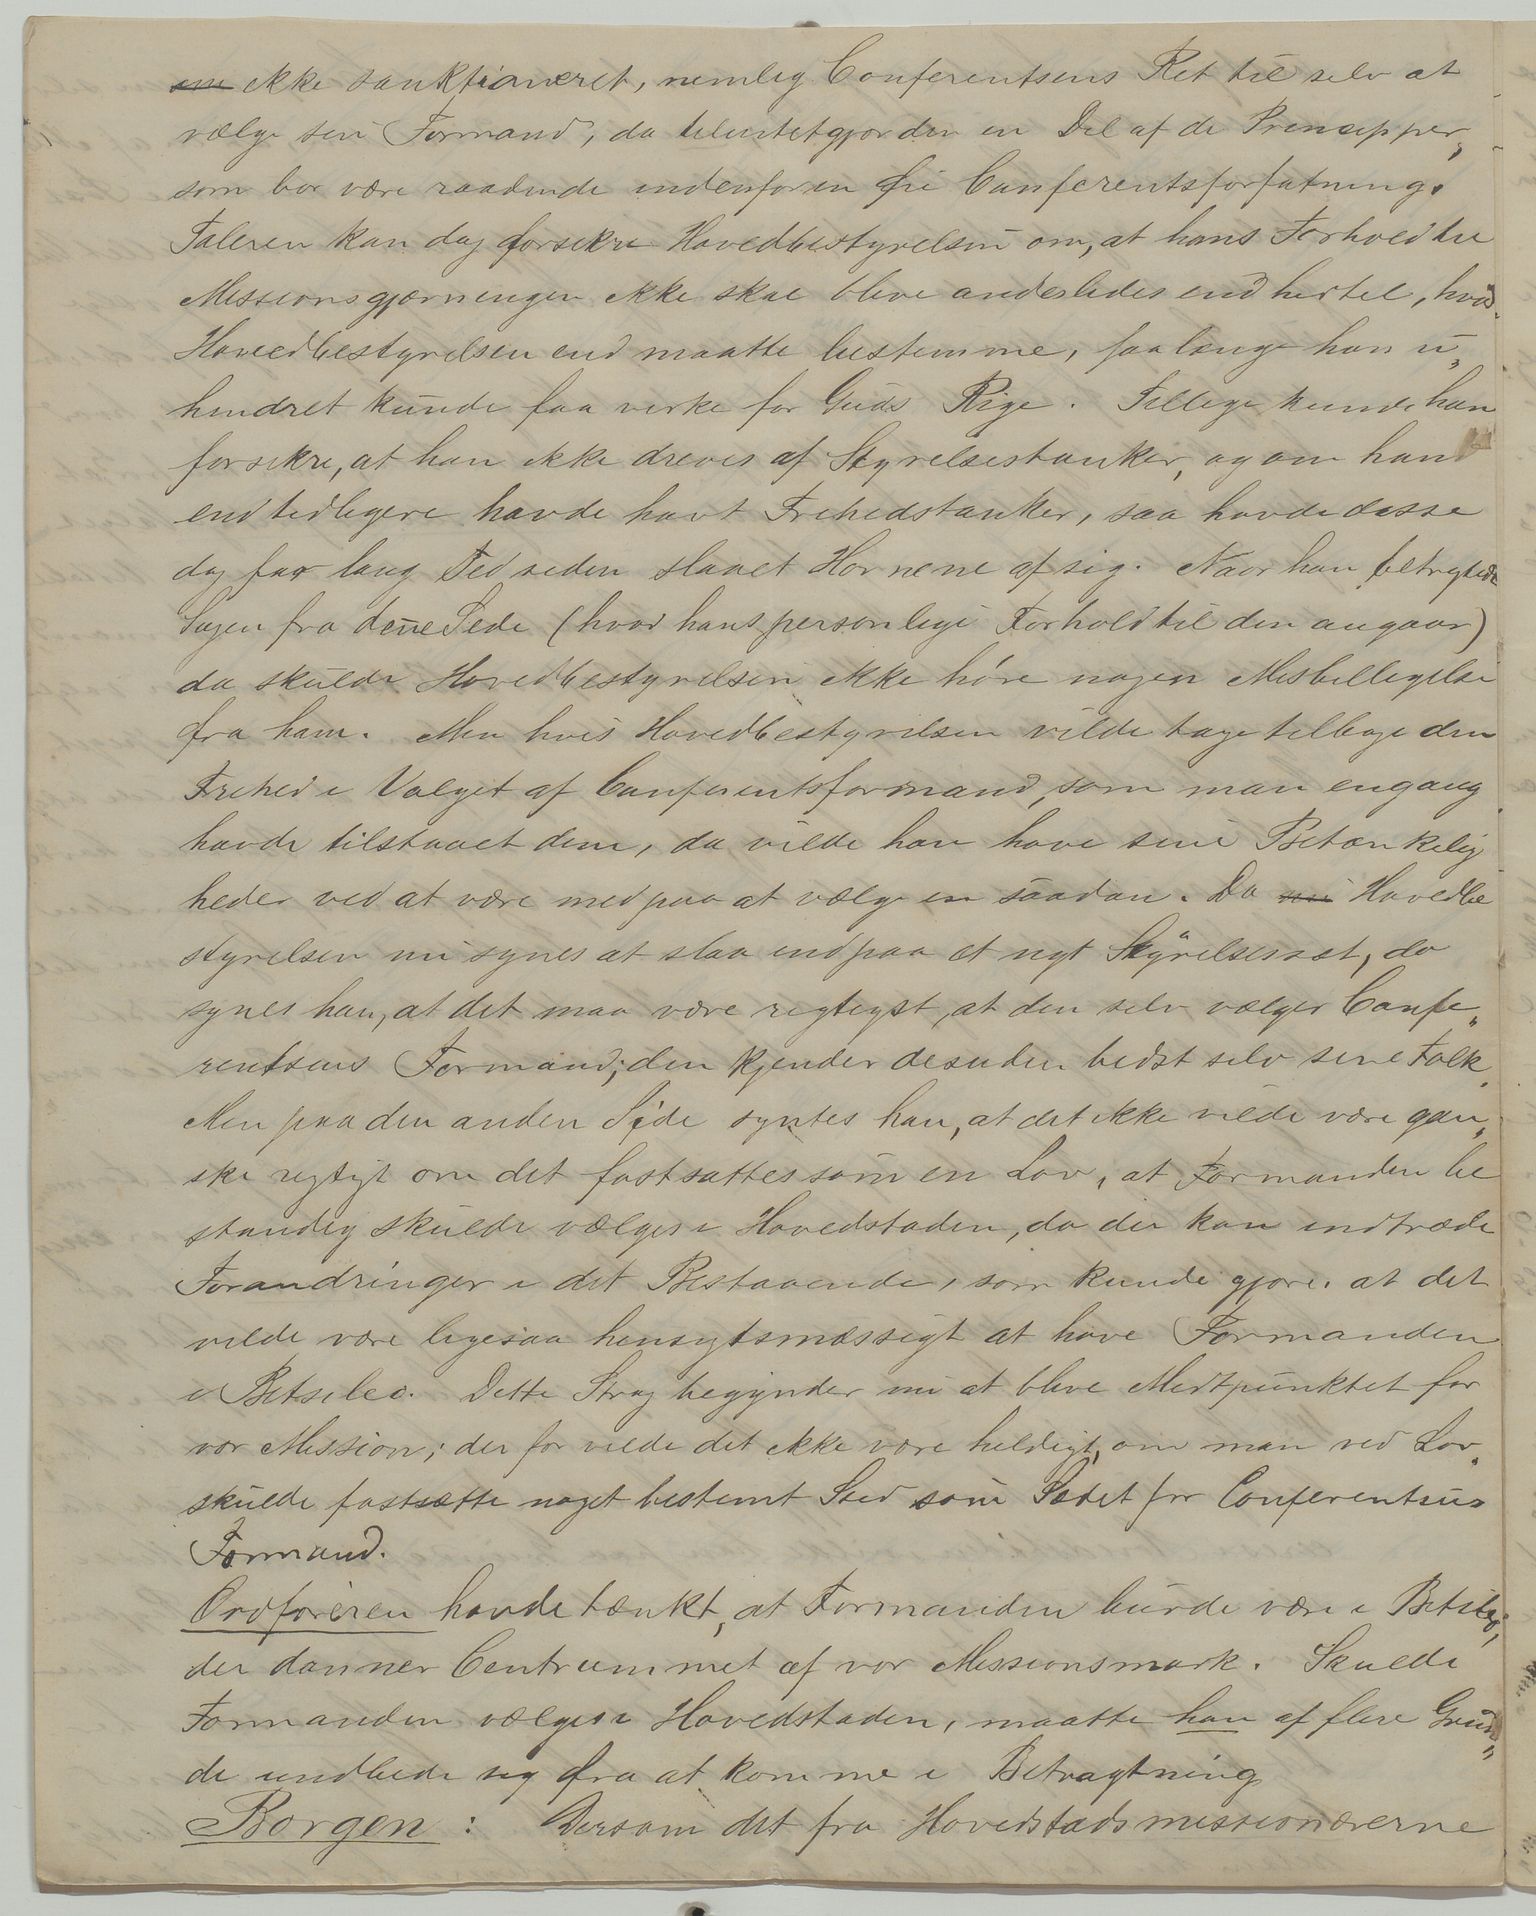 om ikke sanktioneret, nemlig Conferentsens Ret til selv at
vælge sin Formand, da tilintetgjør den en Del af de Principper,
som bør være raadende indenfor en fri Conferentsforfatning.
Taleren kan dog forsikre Hovedbestyrelsen om, at hans Forhold til
Missionsgjerningen ikke skal blive anderledes end hidtil, hvad
Hovedbestyrelsen end maatte bestemme, saalænge han u„
hindret kunde faa virke for Guds Rige. Tillige kunde han
forsikre, at han ikke dreves af Styrelsestanker, og om han
end tidligere havde havt Frihedstanker, saa havde disse
dog for lang Tid siden slaaet Hornene af sig. Naar han betragtede
Sagen fra denne Side (hvad hans personlige Forhold til den angaar)
da skulde Hovedbestyrelsen ikke høre nogen Misbilligelse
fra ham. Men hvis Hovedbestyrelsen vilde tage tilbage den
Frihed i Valget af Conferentsformand, som man engang
havde tilstaaet dem, da vilde han have sine Betænkelig
heder ved at være med paa at vælge en saadan. Da nu Hovedbe
styrelsen nu synes at slaa ind paa et nyt Styrelsessæt, da
synes han, at det maa være rigtigst, at den selv vælger Confe„
rentsens Formand; den kjender desuden bedst selv sine Folk.
Men paa den anden Side syntes han, at det ikke vilde være gan„
ske rigtigt om det fastsattes som en Lov, at Formanden be
standig skulde vælges i Hovedstaden, da der kan indtræde
Forandringer i det Bestaaende, som kunde gjøre, at det
vilde være ligesaa hensigtsmæssigt at have Formanden
i Betsileo. Dette Strøg begynder nu at blive Midtpunktet for
vor Mission; derfor vilde det ikke være heldigt, om man ved Lov
skulde fastsætte noget bestemt Sted som Sædet for Conferentsens
Formand.
Ordføreren havde tænkt, at Formanden burde være i Betsileo,
der danner Centrummet af vor Missionsmark. Skulde
Formanden vælges i Hovedstaden, maatte han af flere Grun„
de undbede sig fra at komme i Betragtning
Borgen: Dersom det fra Hovedstadsmissionærerne